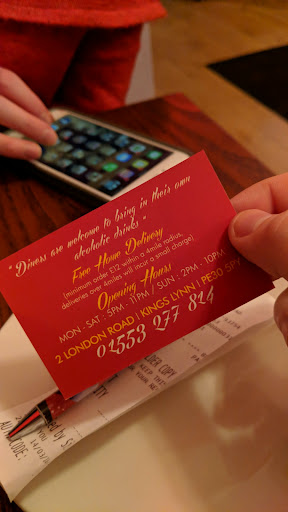 "Diners are welcome to bring in their own
alcoholic drinks"
Free Home Delivery
(minimum order £12 within a 4mile radius,
deliveries over 4miles will incur a small charge)
Opening Hours
MON - SAT : 5PM - 11PM | SUN - 2PM - 10PM
2 LONDON ROAD | KINGS LYNN | PE30 5PY
01553 277 824